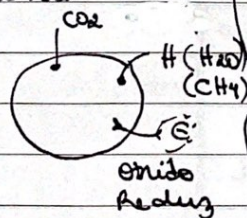 CO2
H (H2O)
(CH4)
é
Oxido
Reduz